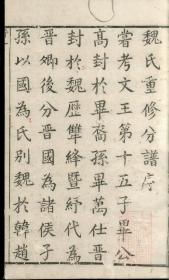 魏氏重修分譜序
嘗考文王第十五子畢公
高封於畢裔孫畢萬仕晋
封於魏歴雙絳暨紓代為
晋卿後分晋國為諸侯子
孫以國為氏別魏於韓趙